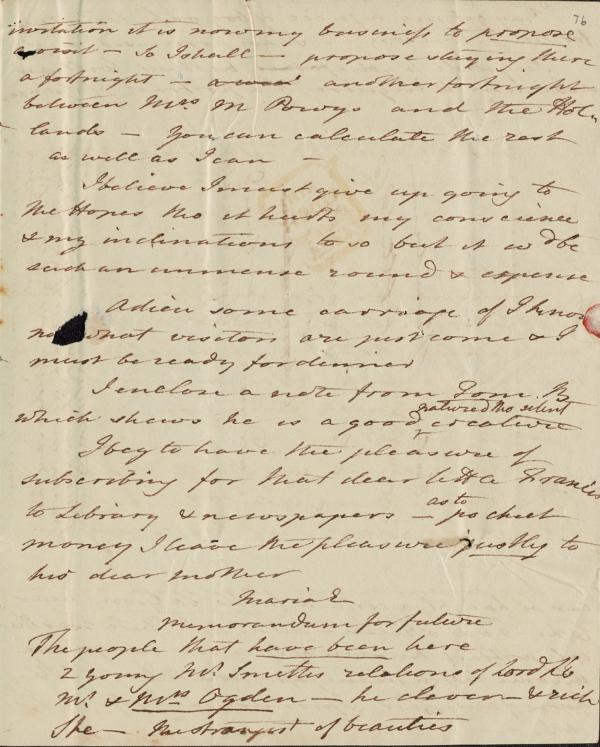 76
invitation it is now my business to propose
a visit – So I shall – propose staying there
a fortnight – a week another fortnight
between Mrs M Powys and the Hol-
lands – You can calculate the rest
as well as I can –
I believe I must give up going to
the Hopes tho it hurts my conscience
& my inclinations to so but it wd be
such an immense round & expense
Adieu some carriage of I know
not what visitors are just come & I
must be ready for dinner
I enclose a note from Tom B
which shews he is a good natured tho silent creature
I beg to have the pleasure of
subscribing for that dear little Francis
to Library & newspapers – as to pocket
money I leave the pleasure justly to
his dear mother
Maria E
Memorandum for future
The people that have been here
2 young Mr Smiths relations of Lord
Mr & Mrs Ogden – he clever & rich
She – the strangest of beauties